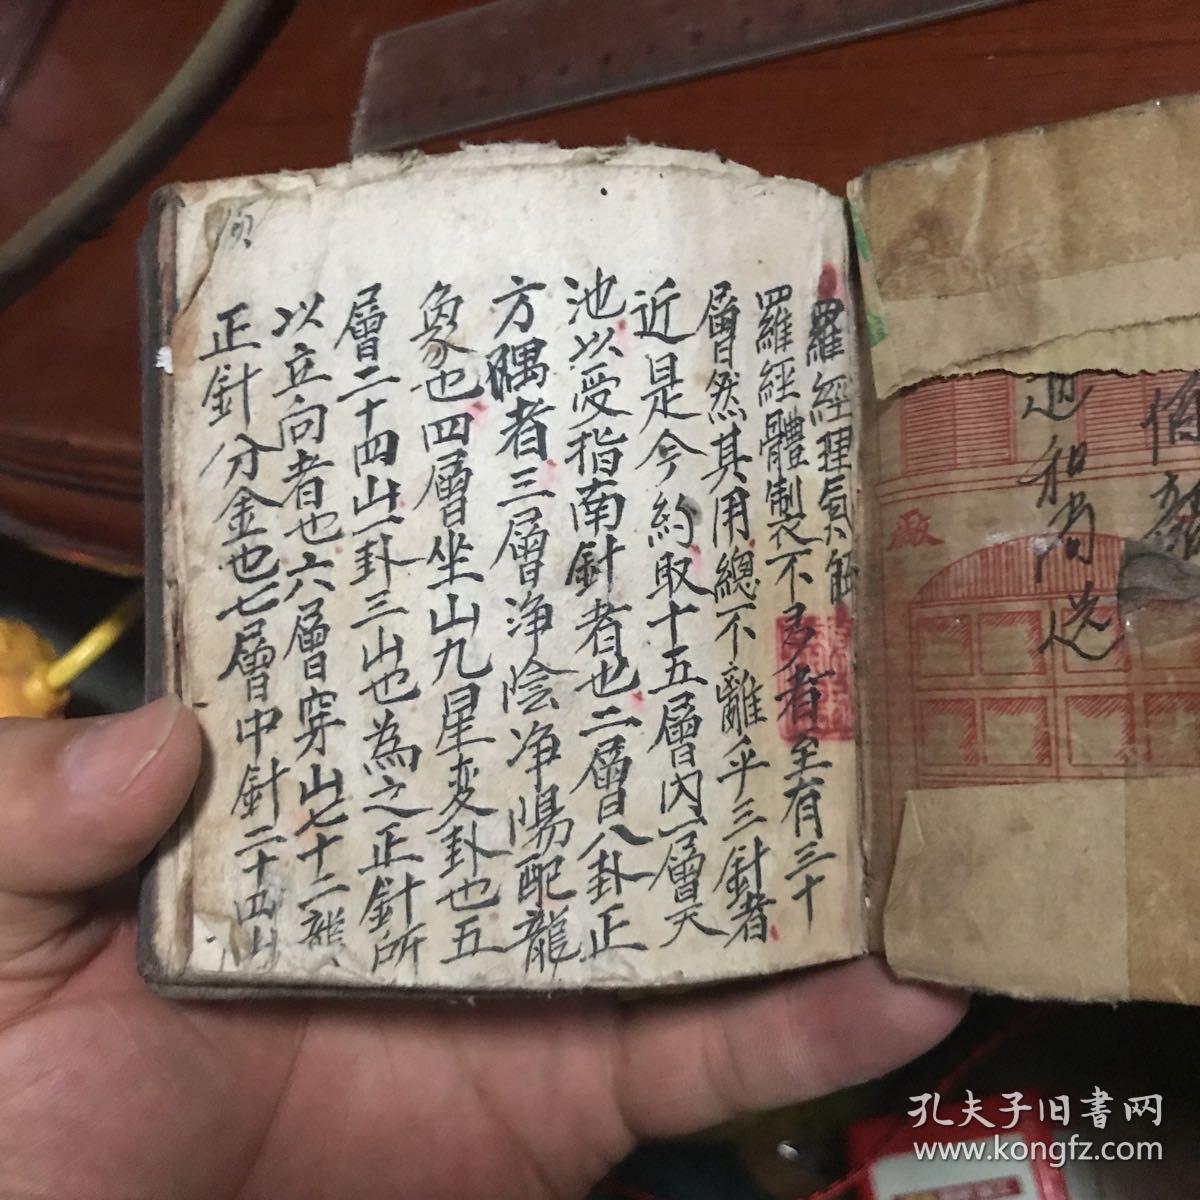 羅經理氣解
羅經體製不多者至有三十
層然其用總不離乎三針者
近是今約取十五層內一層天
池以受指南針者也二層八卦正
方隅者三層净陰净陽配龍
象也四層坐山九星変卦也五
層二十四山一卦三山也為之正針所
以立向者也六層穿山七十二龍
正針分金也七層中針二十四山
和尚送
廠
孔夫子旧書网
www.kongfz.com